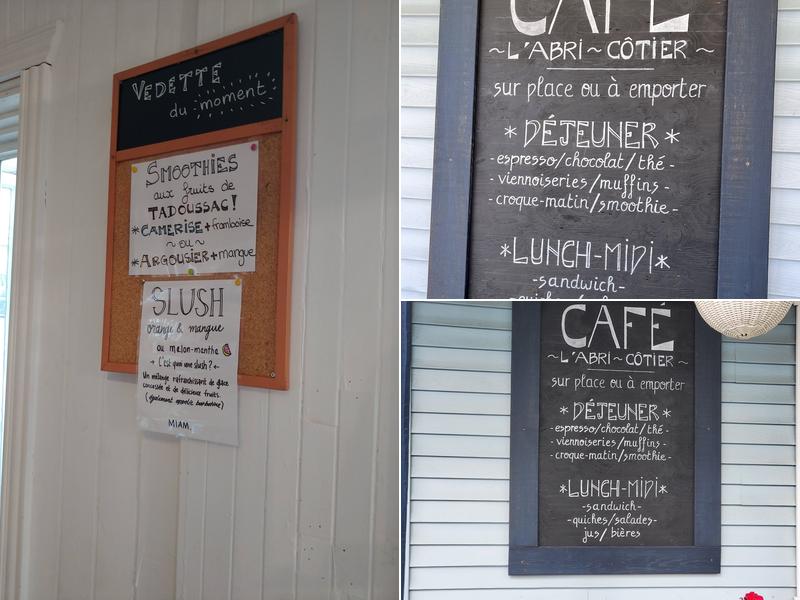 VEDETTE
du moment
SMOOTHIES
aux fruits de
TADOUSSAC!
*CAMERISE+framboise
~ou~
*ARGOUSIER+mangue
SLUSH
orange & mangue
ou melon-menthe
- C'est quoi une slush? -
Un mélange rafraichissant de glace
concassée et de délicieux fruits.
(également appelé barbotine)
MIAM
CAFÉ
~L'ABRI~CÔTIER~
sur place ou à emporter
*DÉJEUNER*
-espresso/chocolat/thé-
-viennoiseries/muffins-
-croque-matin/smoothie-
*LUNCH-MIDI*
-sandwich-
CAFÉ
~L'ABRI~CÔTIER~
sur place ou à emporter
*DÉJEUNER*
-espresso/chocolat/thé-
-viennoiseries/muffins-
-croque-matin/smoothie-
*LUNCH-MIDI*
-sandwich-
-quiches/salades-
jus/bières